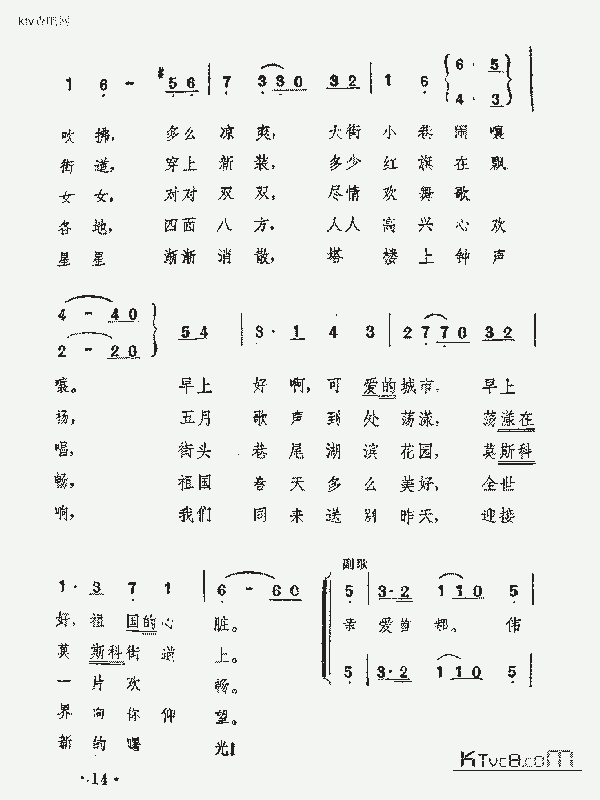 1 6 - #5 6 | 7 3 3 0 3 2 | 1 6 6 · 5
4 · 3
吹拂, 多么凉爽, 大街小巷闹嚷
街道, 穿上新装, 多少红旗在飘
女女, 对对双双, 尽情欢舞歌
各地, 四面八方, 人人高兴心欢
星星 渐渐消散, 塔楼上钟声
4 - 4 0 5 4 | 3 · 1 4 3 | 2 7 7 0 3 2 |
2 - 2 0
嚷。 早上好啊,可爱的城市, 早上
扬, 五月歌声到处荡漾, 荡漾在
唱, 街头巷尾湖滨花园, 莫斯科
畅, 祖国春天多么美好, 全世
响, 我们同来送别昨天, 迎接
副歌
1 · 3 7 1 | 6 - 6 0 5 | 3 · 2 1 1 0 5 |
好,祖国的心脏。 亲爱首都。 伟
莫斯科街道上。 5 | 3 · 2 1 1 0 5 |
一片欢畅。
界向你仰望。
新的曙光!
· 14 ·
KTvc8.com